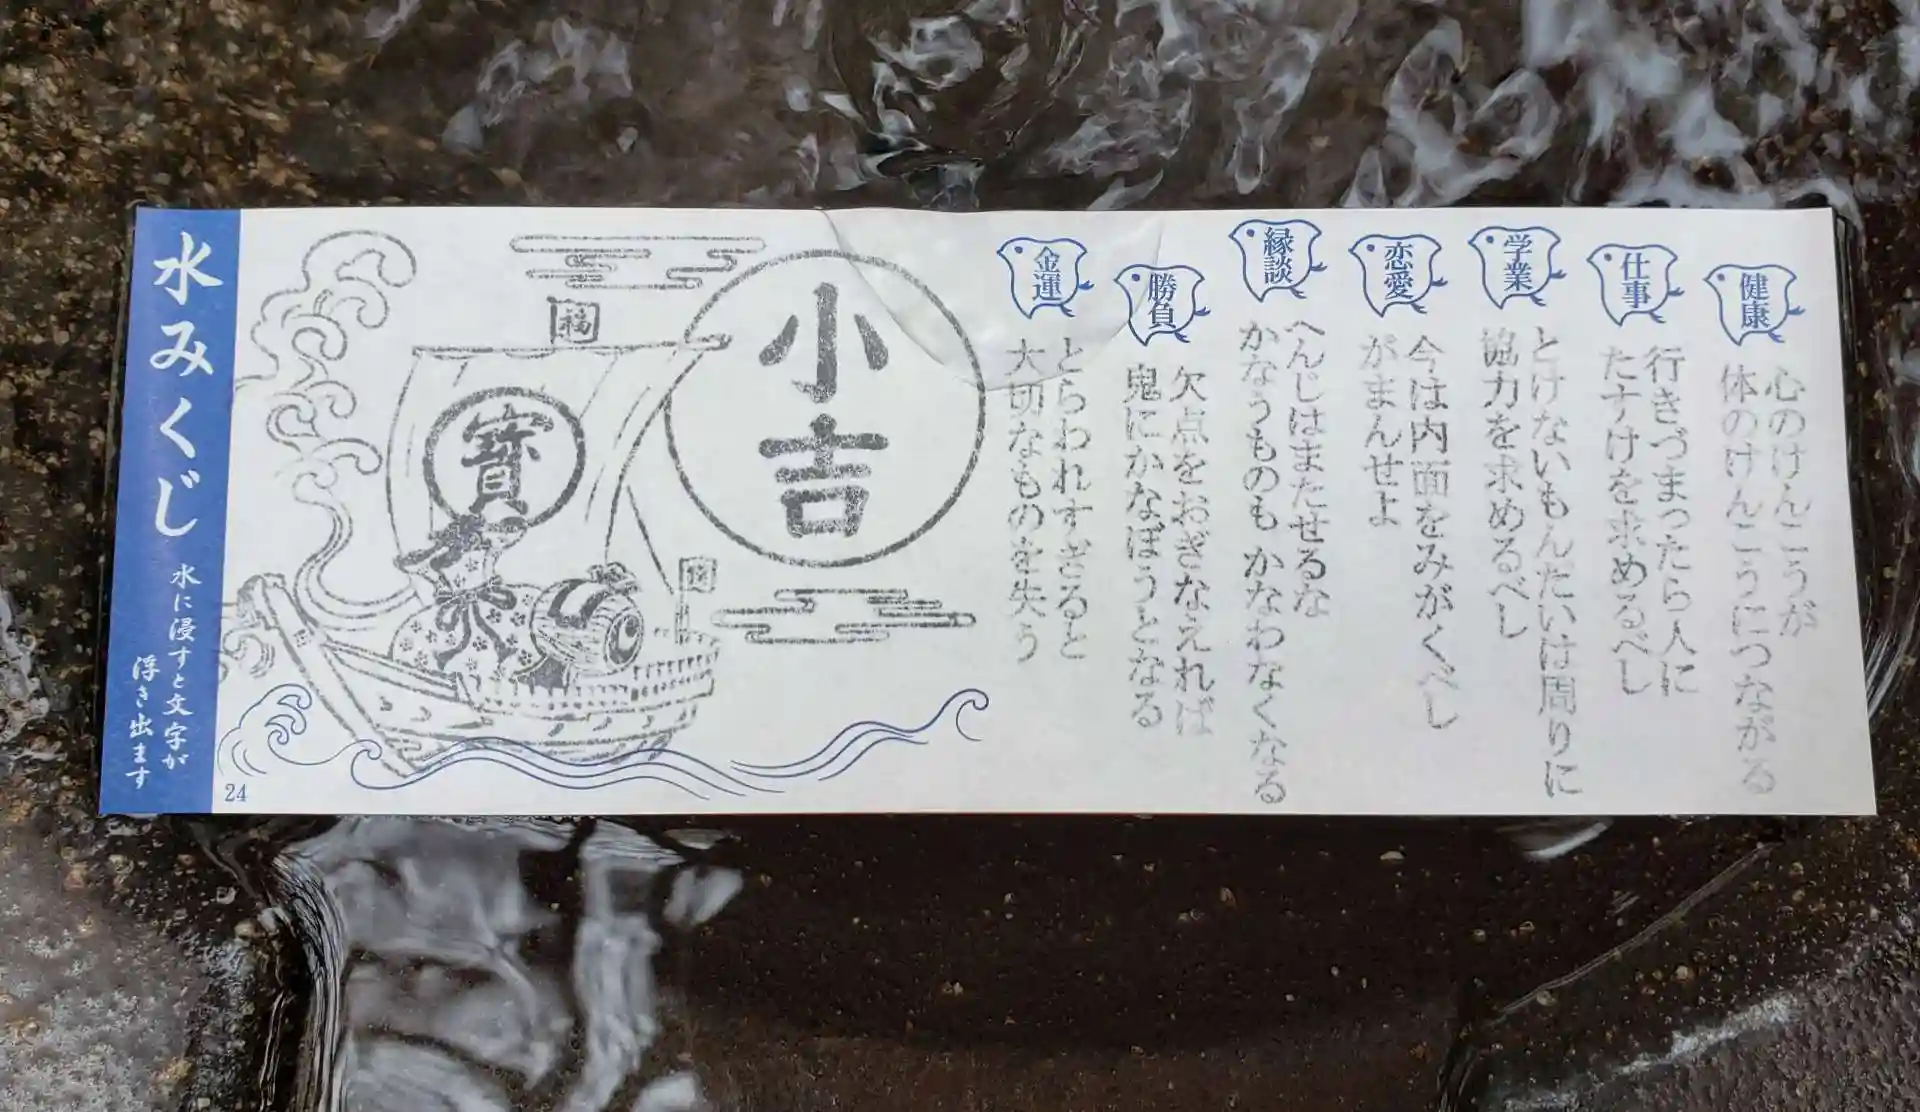 水みくじ
水に浸すと文字が
浮き出ます
24
小吉
福
寶
健康
心のけんこうが
体のけんこうにつながる
仕事
行きづまったら人に
たすけを求めるべし
学業
とけないもんだいは周りに
協力を求めるべし
恋愛
今は内面をみがくべし
がまんせよ
縁談
へんじはまたせるな
かなうものも かなわなくなる
勝負
欠点をおぎなえれば
鬼にかなぼうとなる
金運
とらわれすぎると
大切なものを失う